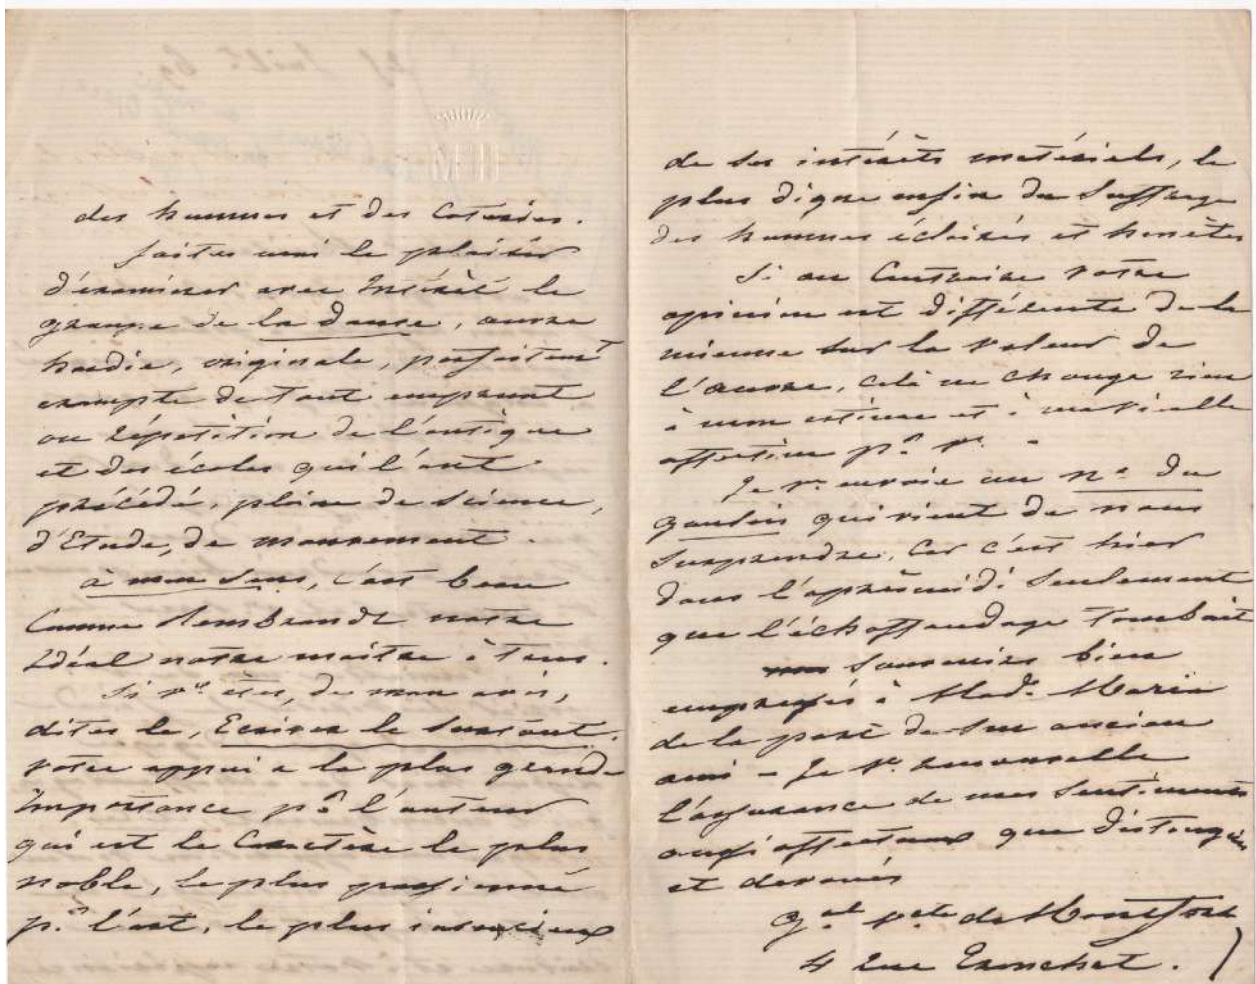 des hommes et des Coteries.
faites moi le plaisir
d'examiner avec Intérêt le
groupe de la danse, œuvre
hardie, originale, parfaitemt
exempte de tout emprunt
ou répétition de l'antique
et des écoles qui l'ont
précédé, pleine de Science,
d'Etude, de mouvement.
à mon sens, c'est beau
Comme Rembrandt notre
Idéal notre maître à tous.
Si vs êtes, de mon avis,
dites le, Ecrivez le surtout.
votre appui a la plus grande
importance pr l'auteur
qui est le Caractère le plus
noble, le plus passionné
pr l'art, le plus insoucieux
de ses intérêts matériels, le
plus digne enfin du Suffrage
des hommes éclairés et honêtes
Si au Contraire votre
opinion est différente de la
mienne sur la valeur de
l'œuvre, celà ne change rien
à mon estime et à ma vieille
affection pr vs. -
Je vs envoie un no du
gaulois qui vient de nous
surprendre, car c'est hier
dans l'aprèsmidi seulement
que l'échaffaudage tombait
Souvenirs bien
empressés à Made Maria
de la part de son ancien
ami - Je vs renouvelle
l'assurance de mes Sentiments
aussi affectueux que distingués
et dévoués
gal vcte de Montfort
4 rue Tronchet.
HM